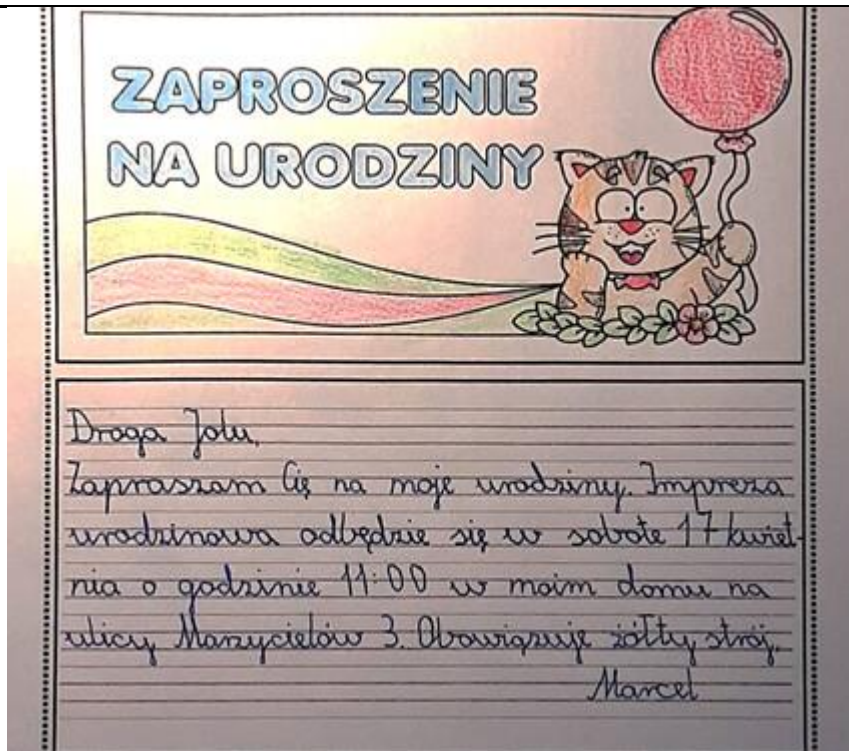 ZAPROSZENIE
NA URODZINY
Droga Jolu,
Zapraszam Cię na moje urodziny. Impreza
urodzinowa odbędzie się w sobotę 17 kwiet-
nia o godzinie 11:00 w moim domu na
ulicy Marzycielów 3. Obowiązuje żółty strój.
Marcel